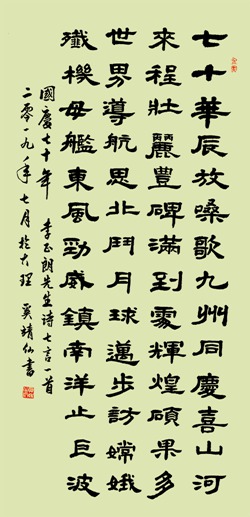 七十華辰放嗓歌九州同慶喜山河
來程壯麗豐碑滿到處輝煌碩果多
世界導航思北鬥月球邁步訪嫦娥
殲機母艦東風勁威鎮南洋止巨波
國慶七十年 李朗先生诗七言一首
二零一九年七月於大理 靖仙書